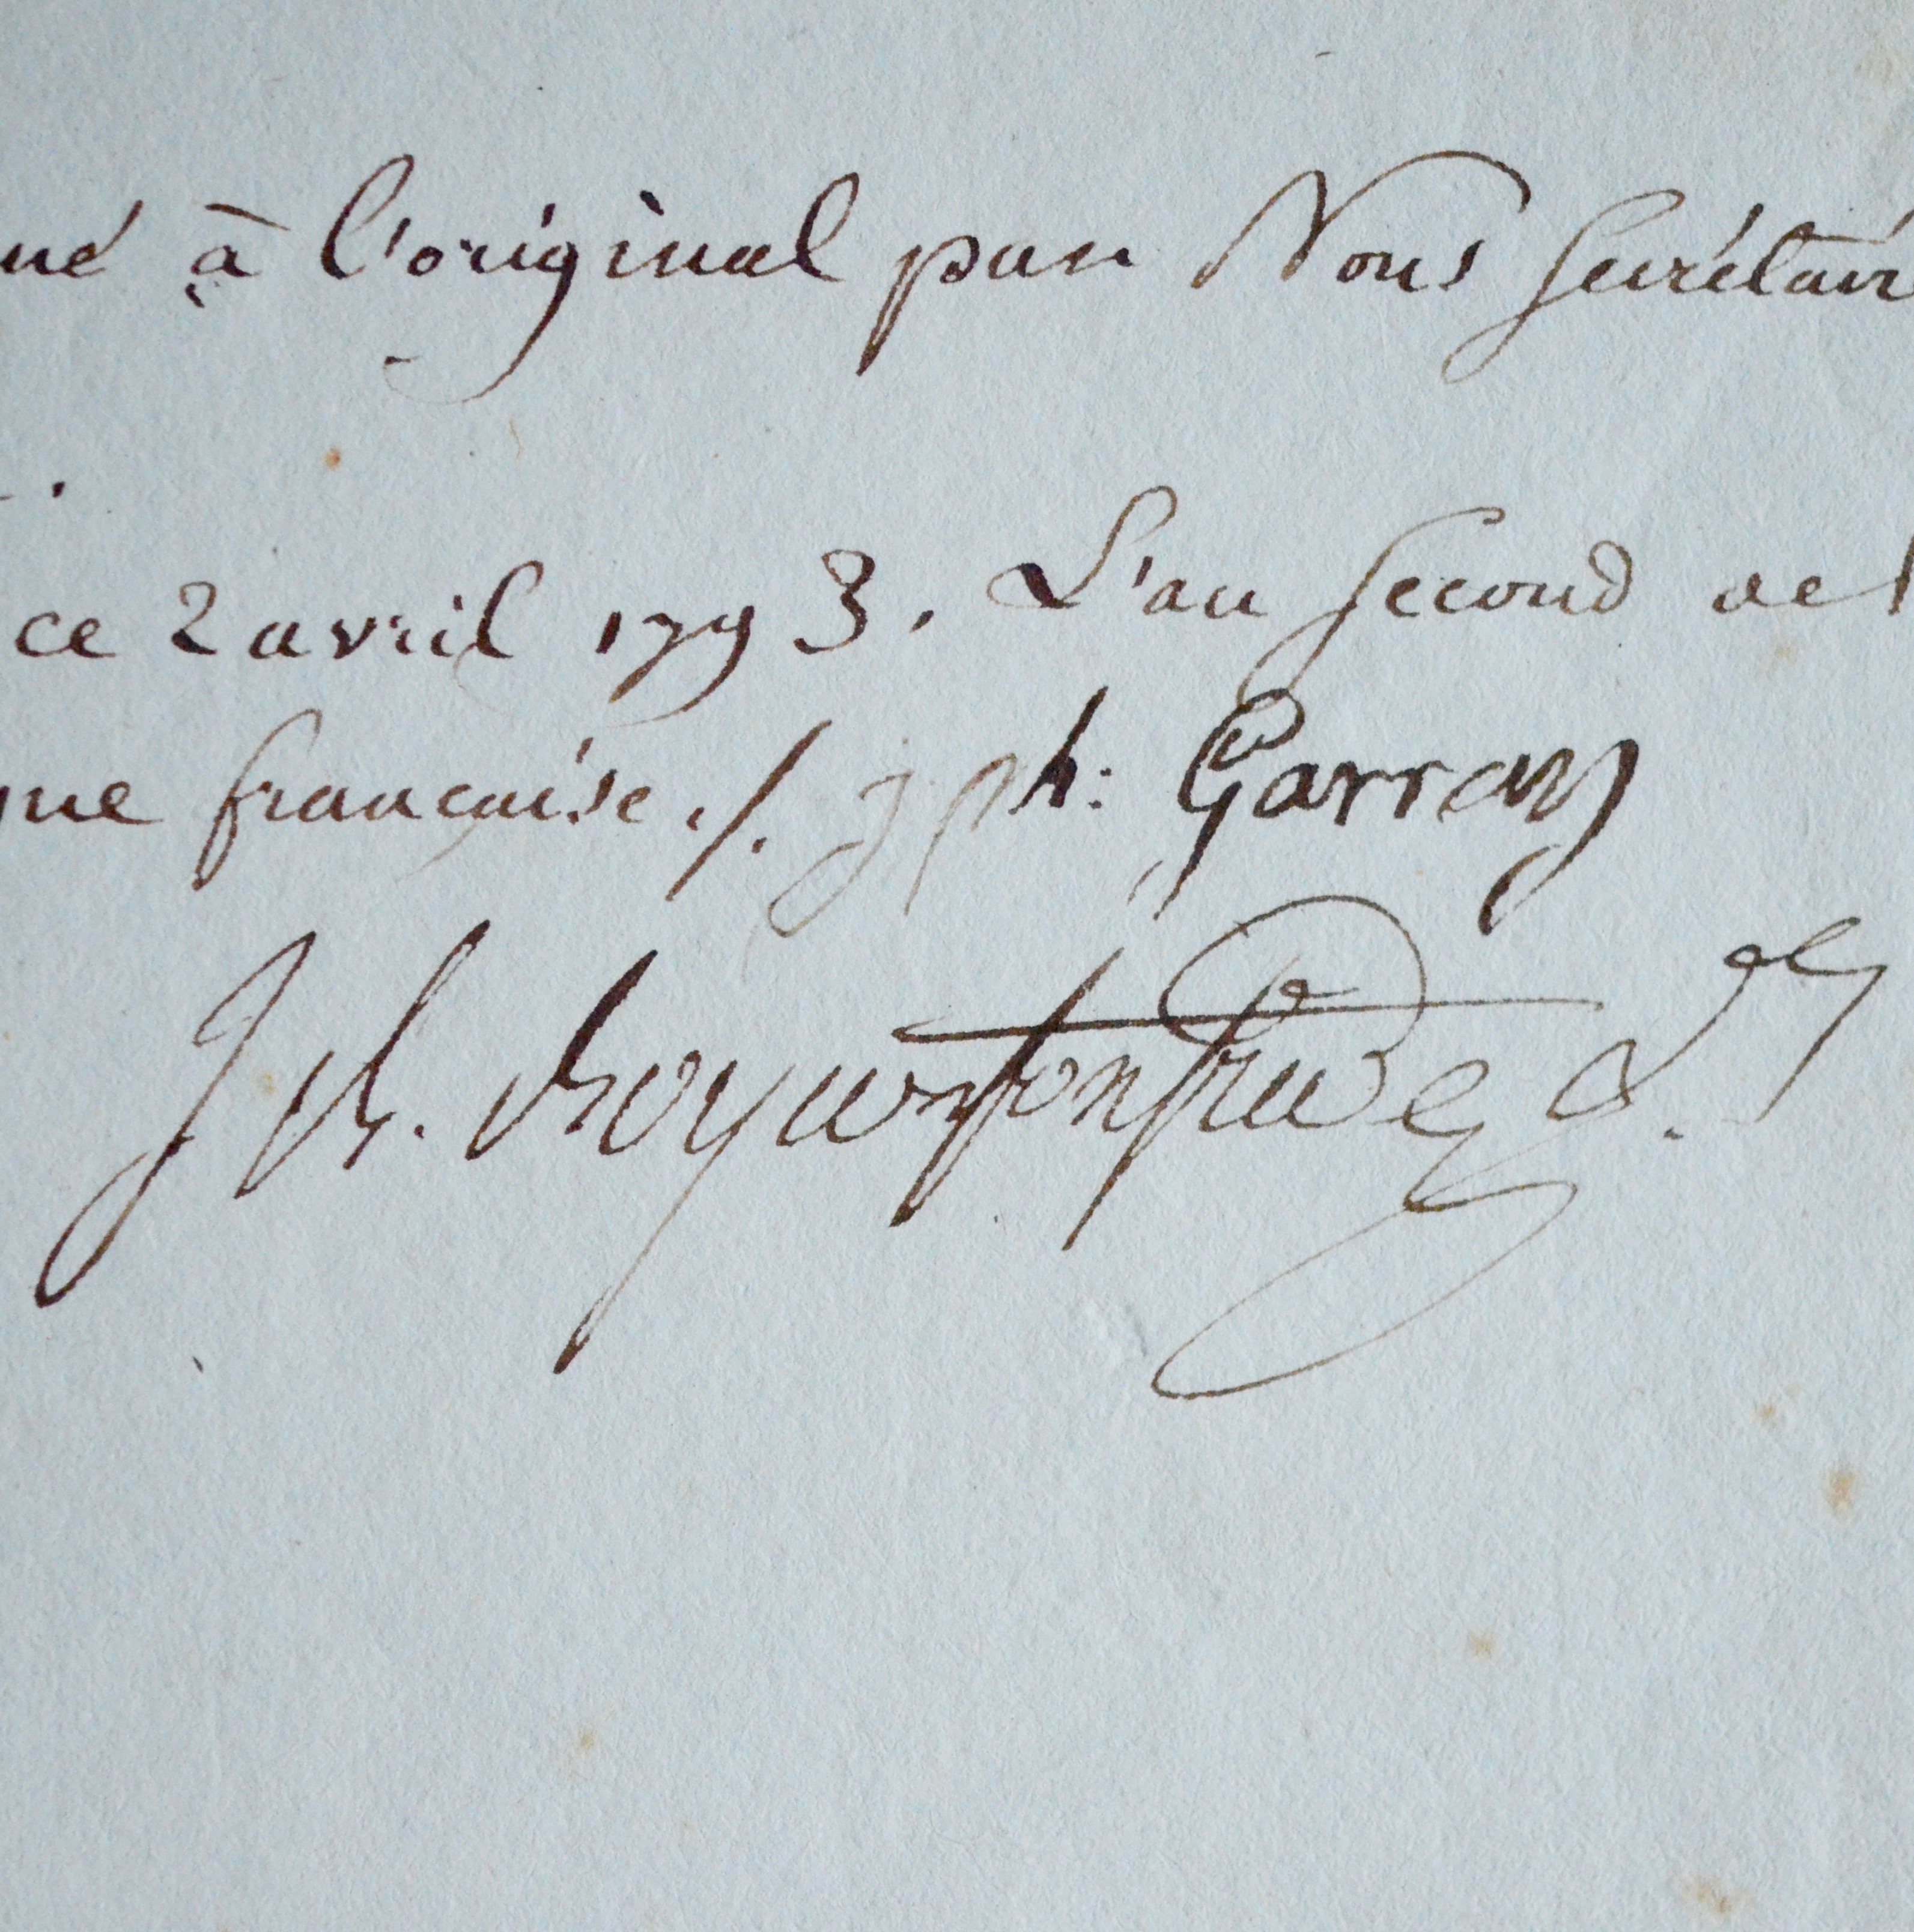 né à l'original par Nous Secrétair
ce 2 avril 1793. L'an Second de l
ue françoise ./. J ph: Garran
J ch. Boyer fonfrede S.